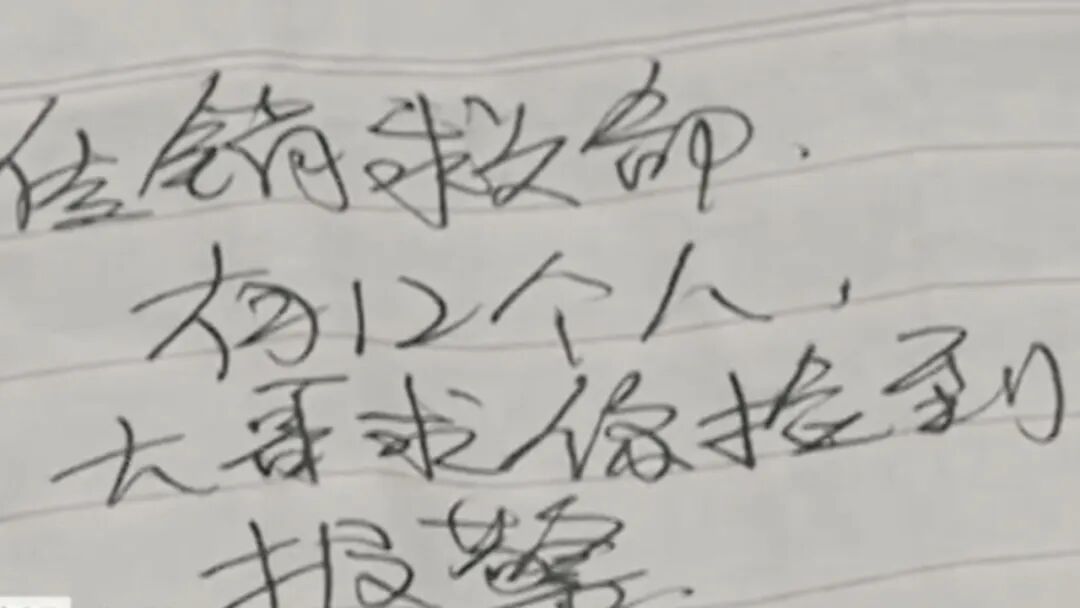 传销救命.
初12个人.
大哥求你捡到
报警.